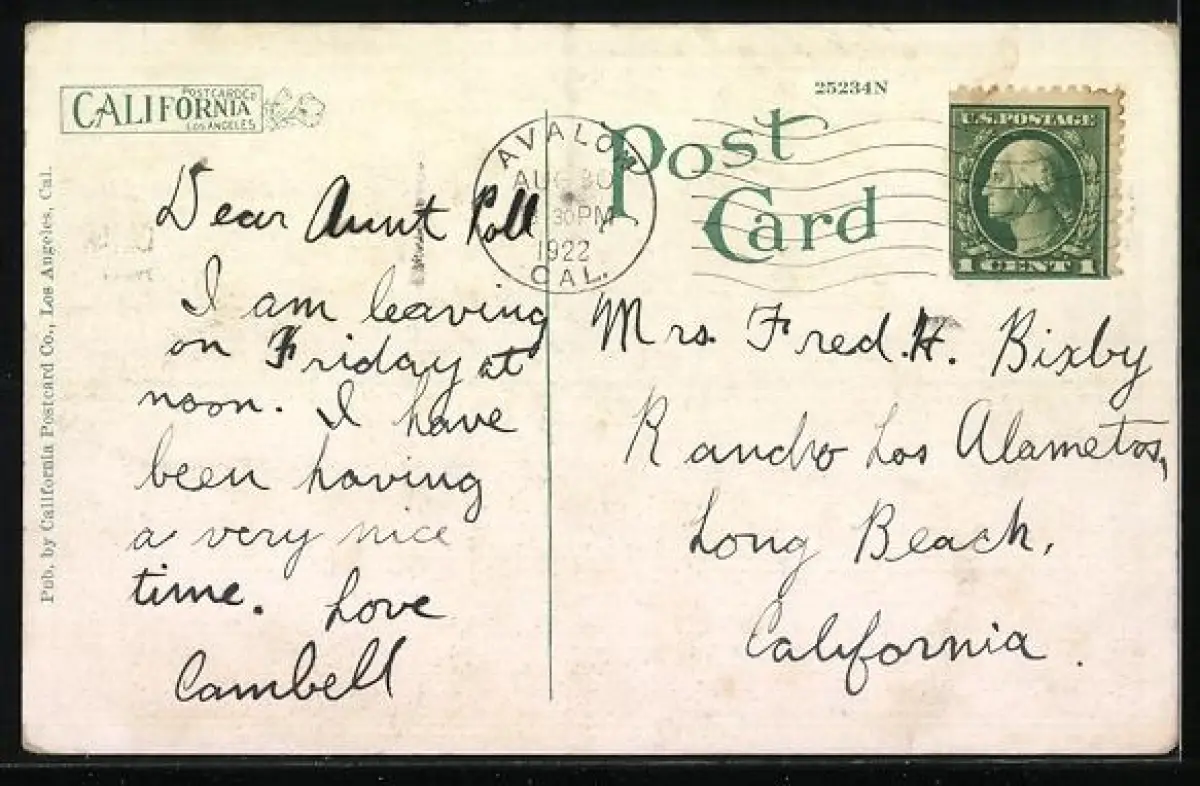 POSTCARD Co
CALIFORNIA
LOS ANGELES
Pub. by California Postcard Co., Los Angeles, Cal.
25234N
Post
Card
AVALON
AUG 30
30 PM
1922
CAL.
U.S. POSTAGE
1 CENT 1
Dear Aunt Poll
I am leaving
on Friday at
noon. I have
been having
a very nice
time. Love
Cambell
Mrs. Fred. H. Bixby
Rancho Los Alametos,
Long Beach,
California.